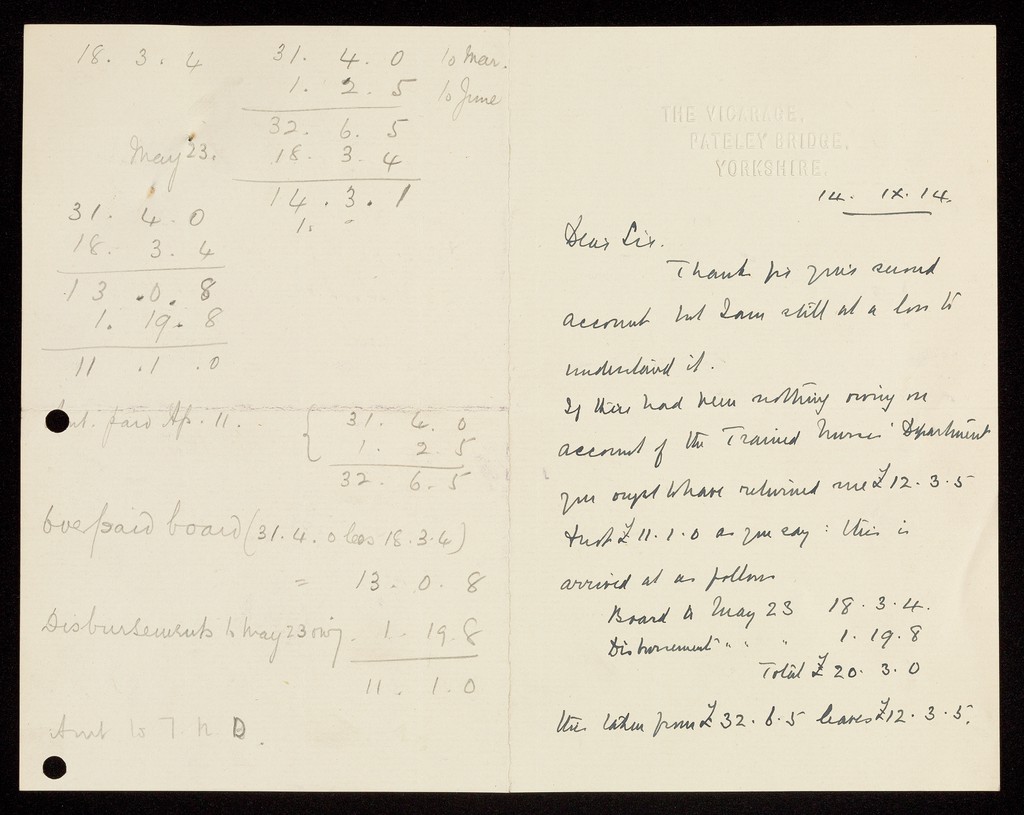 18. 3. 4
31. 4. 0 to Mar.
1. 2. 5 to June
32. 6. 5
18. 3. 4
14. 3. 1
1. -
May 23.
31. 4. 0
18. 3. 4
13. 0. 8
1. 19. 8
11. 1. 0
paid Ap. 11.
31. 4. 0
1. 2. 5
32. 6. 5
Overpaid board (31. 4. 0 less 18. 3. 4)
= 13. 0. 8
Disbursements to May 23 owg. 1. 19. 8
11. 1. 0
Amt to T N D.
THE VICARAGE,
PATELEY BRIDGE,
YORKSHIRE.
14. IX. 14.
Dear Sir.
Thanks for your second
account but I am still at a loss to
understand it.
If there had been nothing owing on
account of the Trained Nurses' Department
you ought to have returned me £12. 3. 5
& not £11. 1. 0 as you say: this is
arrived at as follows
Board to May 23 18. 3. 4.
Disbursement " " " 1. 19. 8
Total £20. 3. 0
this taken from £32. 6. 5 leaves £12. 3. 5.